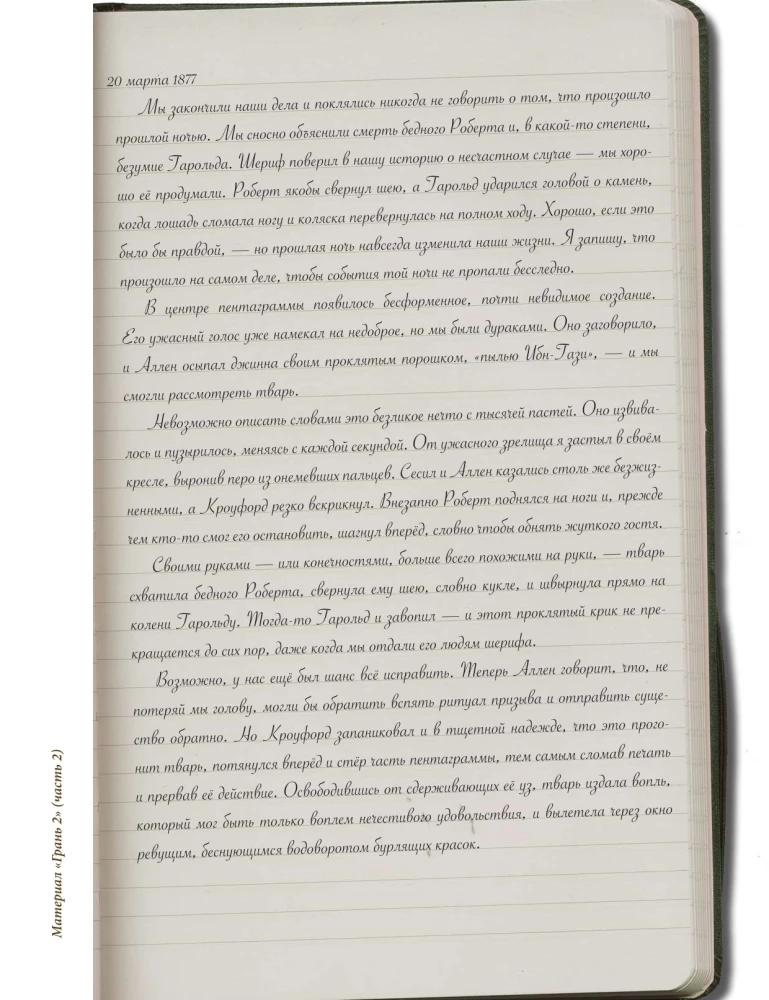 20 марта 1877
Мы закончили наши дела и поклялись никогда не говорить о том, что произошло
прошлой ночью. Мы сносно объяснили смерть бедного Роберта и, в какой-то степени,
безумие Гарольда. Шериф поверил в нашу историю о несчастном случае — мы хоро-
шо её продумали. Роберт якобы свернул шею, а Гарольд ударился головой о камень,
когда лошадь сломала ногу и коляска перевернулась на полном ходу. Хорошо, если это
было бы правдой, — но прошлая ночь навсегда изменила наши жизни. Я запишу, что
произошло на самом деле, чтобы события той ночи не пропали бесследно.
В центре пентаграммы появилось бесформенное, почти невидимое создание.
Его ужасный голос уже намекал на недоброе, но мы были дураками. Оно заговорило,
и Аллен осыпал джинна своим проклятым порошком, «пылью Ибн-Гази», — и мы
смогли рассмотреть тварь.
Невозможно описать словами это безликое нечто с тысячей пастей. Оно извива-
лось и пузырилось, меняясь с каждой секундой. От ужасного зрелища я застыл в своём
кресле, выронив перо из онемевших пальцев. Сесил и Аллен казались столь же безжиз-
ненными, а Кроуфорд резко вскрикнул. Внезапно Роберт поднялся на ноги и, прежде
чем кто-то смог его остановить, шагнул вперёд, словно чтобы обнять жуткого гостя.
Своими руками — или конечностями, больше всего похожими на руки, — тварь
схватила бедного Роберта, свернула ему шею, словно кукле, и швырнула прямо на
колени Гарольду. Тогда-то Гарольд и завопил — и этот проклятый крик не пре-
кращается до сих пор, даже когда мы отдали его людям шерифа.
Возможно, у нас ещё был шанс всё исправить. Теперь Аллен говорит, что, не
потеряй мы голову, могли бы обратить вспять ритуал призыва и отправить суще-
ство обратно. Но Кроуфорд запаниковал и в тщетной надежде, что это прого-
нит тварь, потянулся вперёд и стёр часть пентаграммы, тем самым сломав печать
и прервав её действие. Освободившись от сдерживающих её уз, тварь издала вопль,
который мог быть только воплем нечестивого удовольствия, и вылетела через окно
ревущим, беснующимся водоворотом бурлящих красок.
Материал «Грань 2» (часть 2)